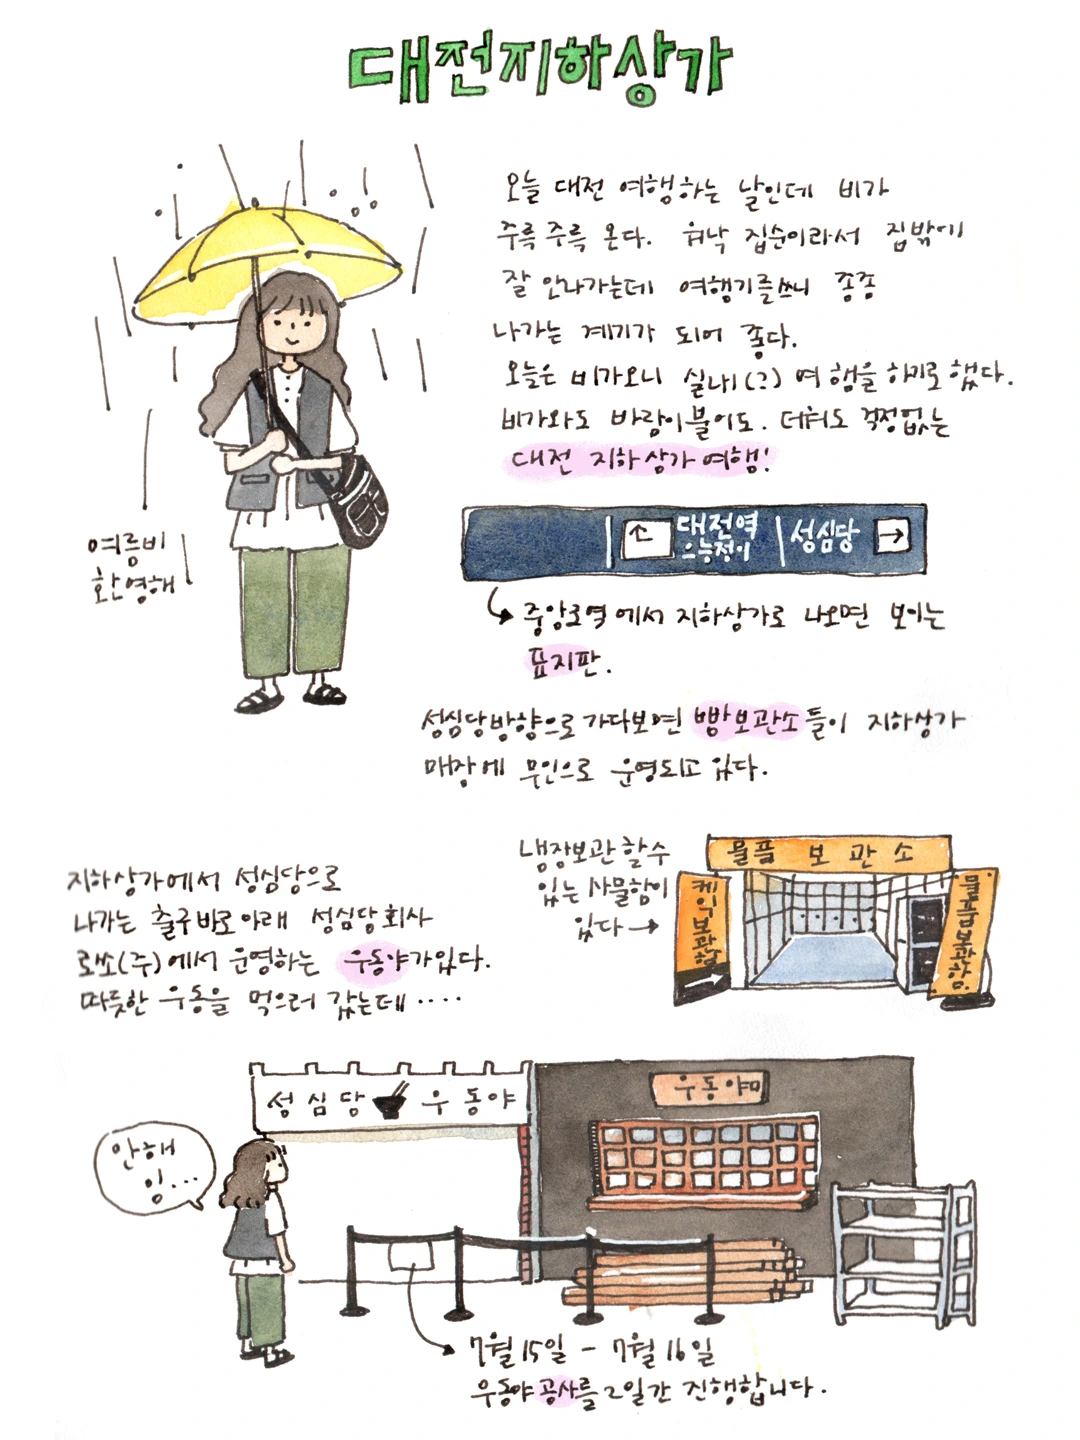 대전지하상가
오늘 대전 여행하는 날인데 비가
주륵주륵 온다. 워낙 집순이라서 집밖에
잘 안나가는데 여행기를쓰니 종종
나가는 계기가 되어 좋다.
오늘은 비가오니 실내(?) 여행을 하기로 했다.
비가와도 바람이불어도. 더워도 걱정없는
대전 지하상가여행!
여름비
환영해
대전역
으능정이
성심당
중앙로역에서 지하상가로 나오면 보이는
표지판.
성심당방향으로 가다보면 빵보관소들이 지하상가
매장에 무인으로 운영되고 있다.
냉장보관할수
있는 사물함이
있다
물품 보관소
케익보관함
물품보관함
지하상가에서 성심당으로
나가는 출구바로아래 성심당회사
로쏘(주)에서 운영하는 우동야가있다.
따뜻한 우동을 먹으러 갔는데 ····
성심당 우동야
우동야미
안해
잉...
7월 15일 - 7월 16일
우동야 공사를 2일간 진행합니다.